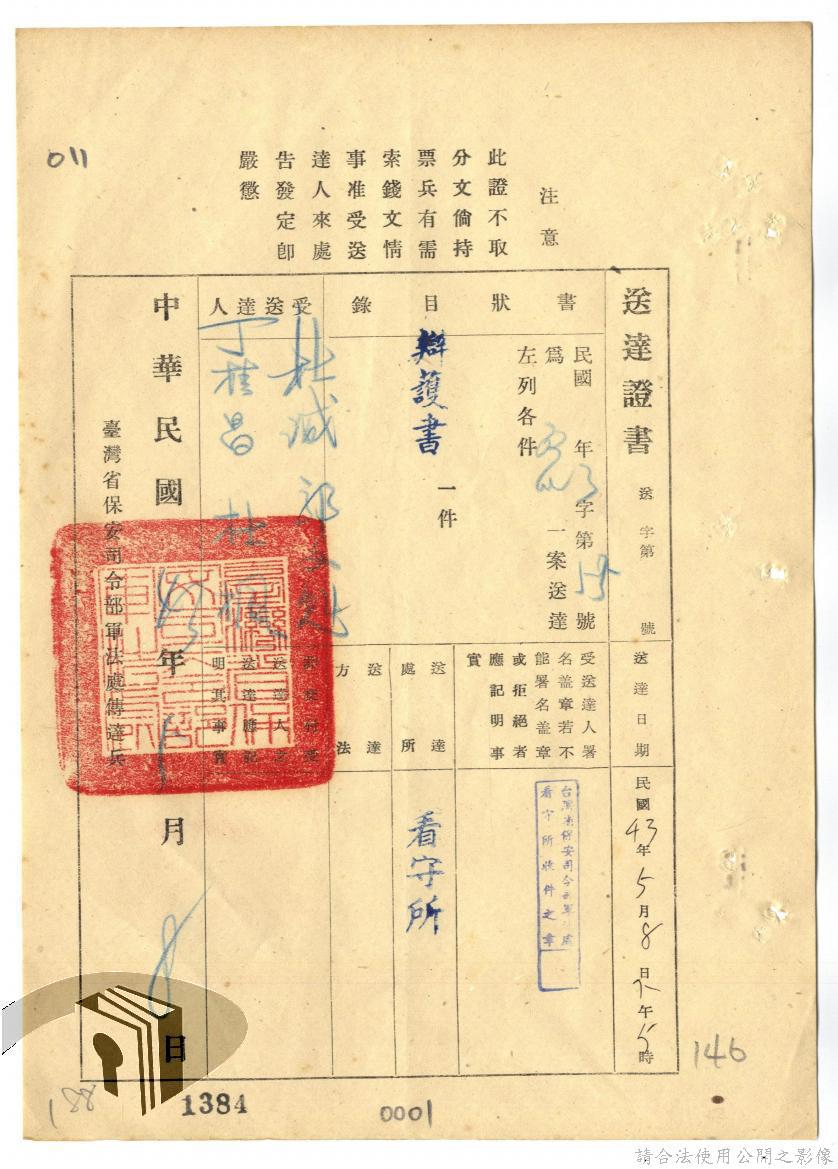 011
注意
此證不取
分文倘持
票兵有需
索錢文情
事准受送
達人來處
告發定卽
嚴懲
送達證書
送 字第 號
送達日期
民國43年5月8日下午5時
書狀目錄
民國 年 字第 號
爲 一案送達
左列各件
辯護書 一件
受送達人署
名盖章若不
能署名盖章
或拒絕者
應記明事
實
台灣省保安司令部軍法處
看守所收件之章
送達處所
看守所
送達方法
受送達人
杜誠
丁桂昌
送達人之
送達應記
明其事實
中華民國 年 月8日
臺灣省保安司令部軍法處傳達兵
146
188
1384
0001
請合法使用公開之影像